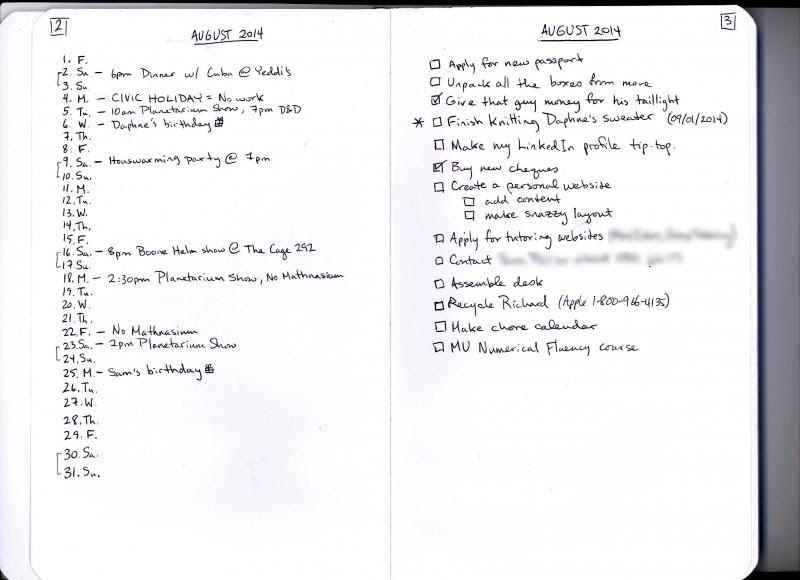 2
AUGUST 2014
1. F.
2. Sa. – 6pm Dinner w/ Cuba @ Yeddi's
3. Su.
4. M. – CIVIC HOLIDAY = No work
5. Tu. – 10am Planetarium Show, 7pm D&D
6. W. – Daphne's birthday
7. Th.
8. F.
9. Sa. – Houswarming party @ 7pm
10. Su.
11. M.
12. Tu.
13. W.
14. Th.
15. F.
16. Sa. – 8pm Boone Helm show @ The Cage 292
17 Su.
18. M. – 2:30pm Planetarium Show, No Mathnasium
19. Tu.
20. W.
21. Th.
22. F. – No Mathnasium
23. Sa. – 2pm Planetarium Show
24. Su.
25. M. – Sam's birthday
26. Tu.
27. W.
28. Th.
29. F.
30. Sa.
31. Su.
3
AUGUST 2014
Apply for new passport
Unpack all the boxes from move
Give that guy money for his taillight
* Finish Knitting Daphne's sweater (09/01/2014)
Make my LinkedIn profile tip-top.
Buy new cheques
Create a personal website
add content
make snazzy layout
Apply for tutoring websites
Contact
Assemble desk
Recycle Richard (Apple 1-800-966-4135)
Make chore calendar
MU Numerical Fluency course